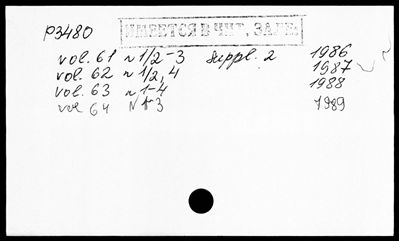 P3480 ИМЕЕТСЯ В ЧИТ. ЗАЛЕ
vol. 61 N 1/2-3 suppl. 2 1986
vol. 62 N 1/2, 4 1987
vol. 63 N 1-4 1988
vol 64 N 1-3 1989